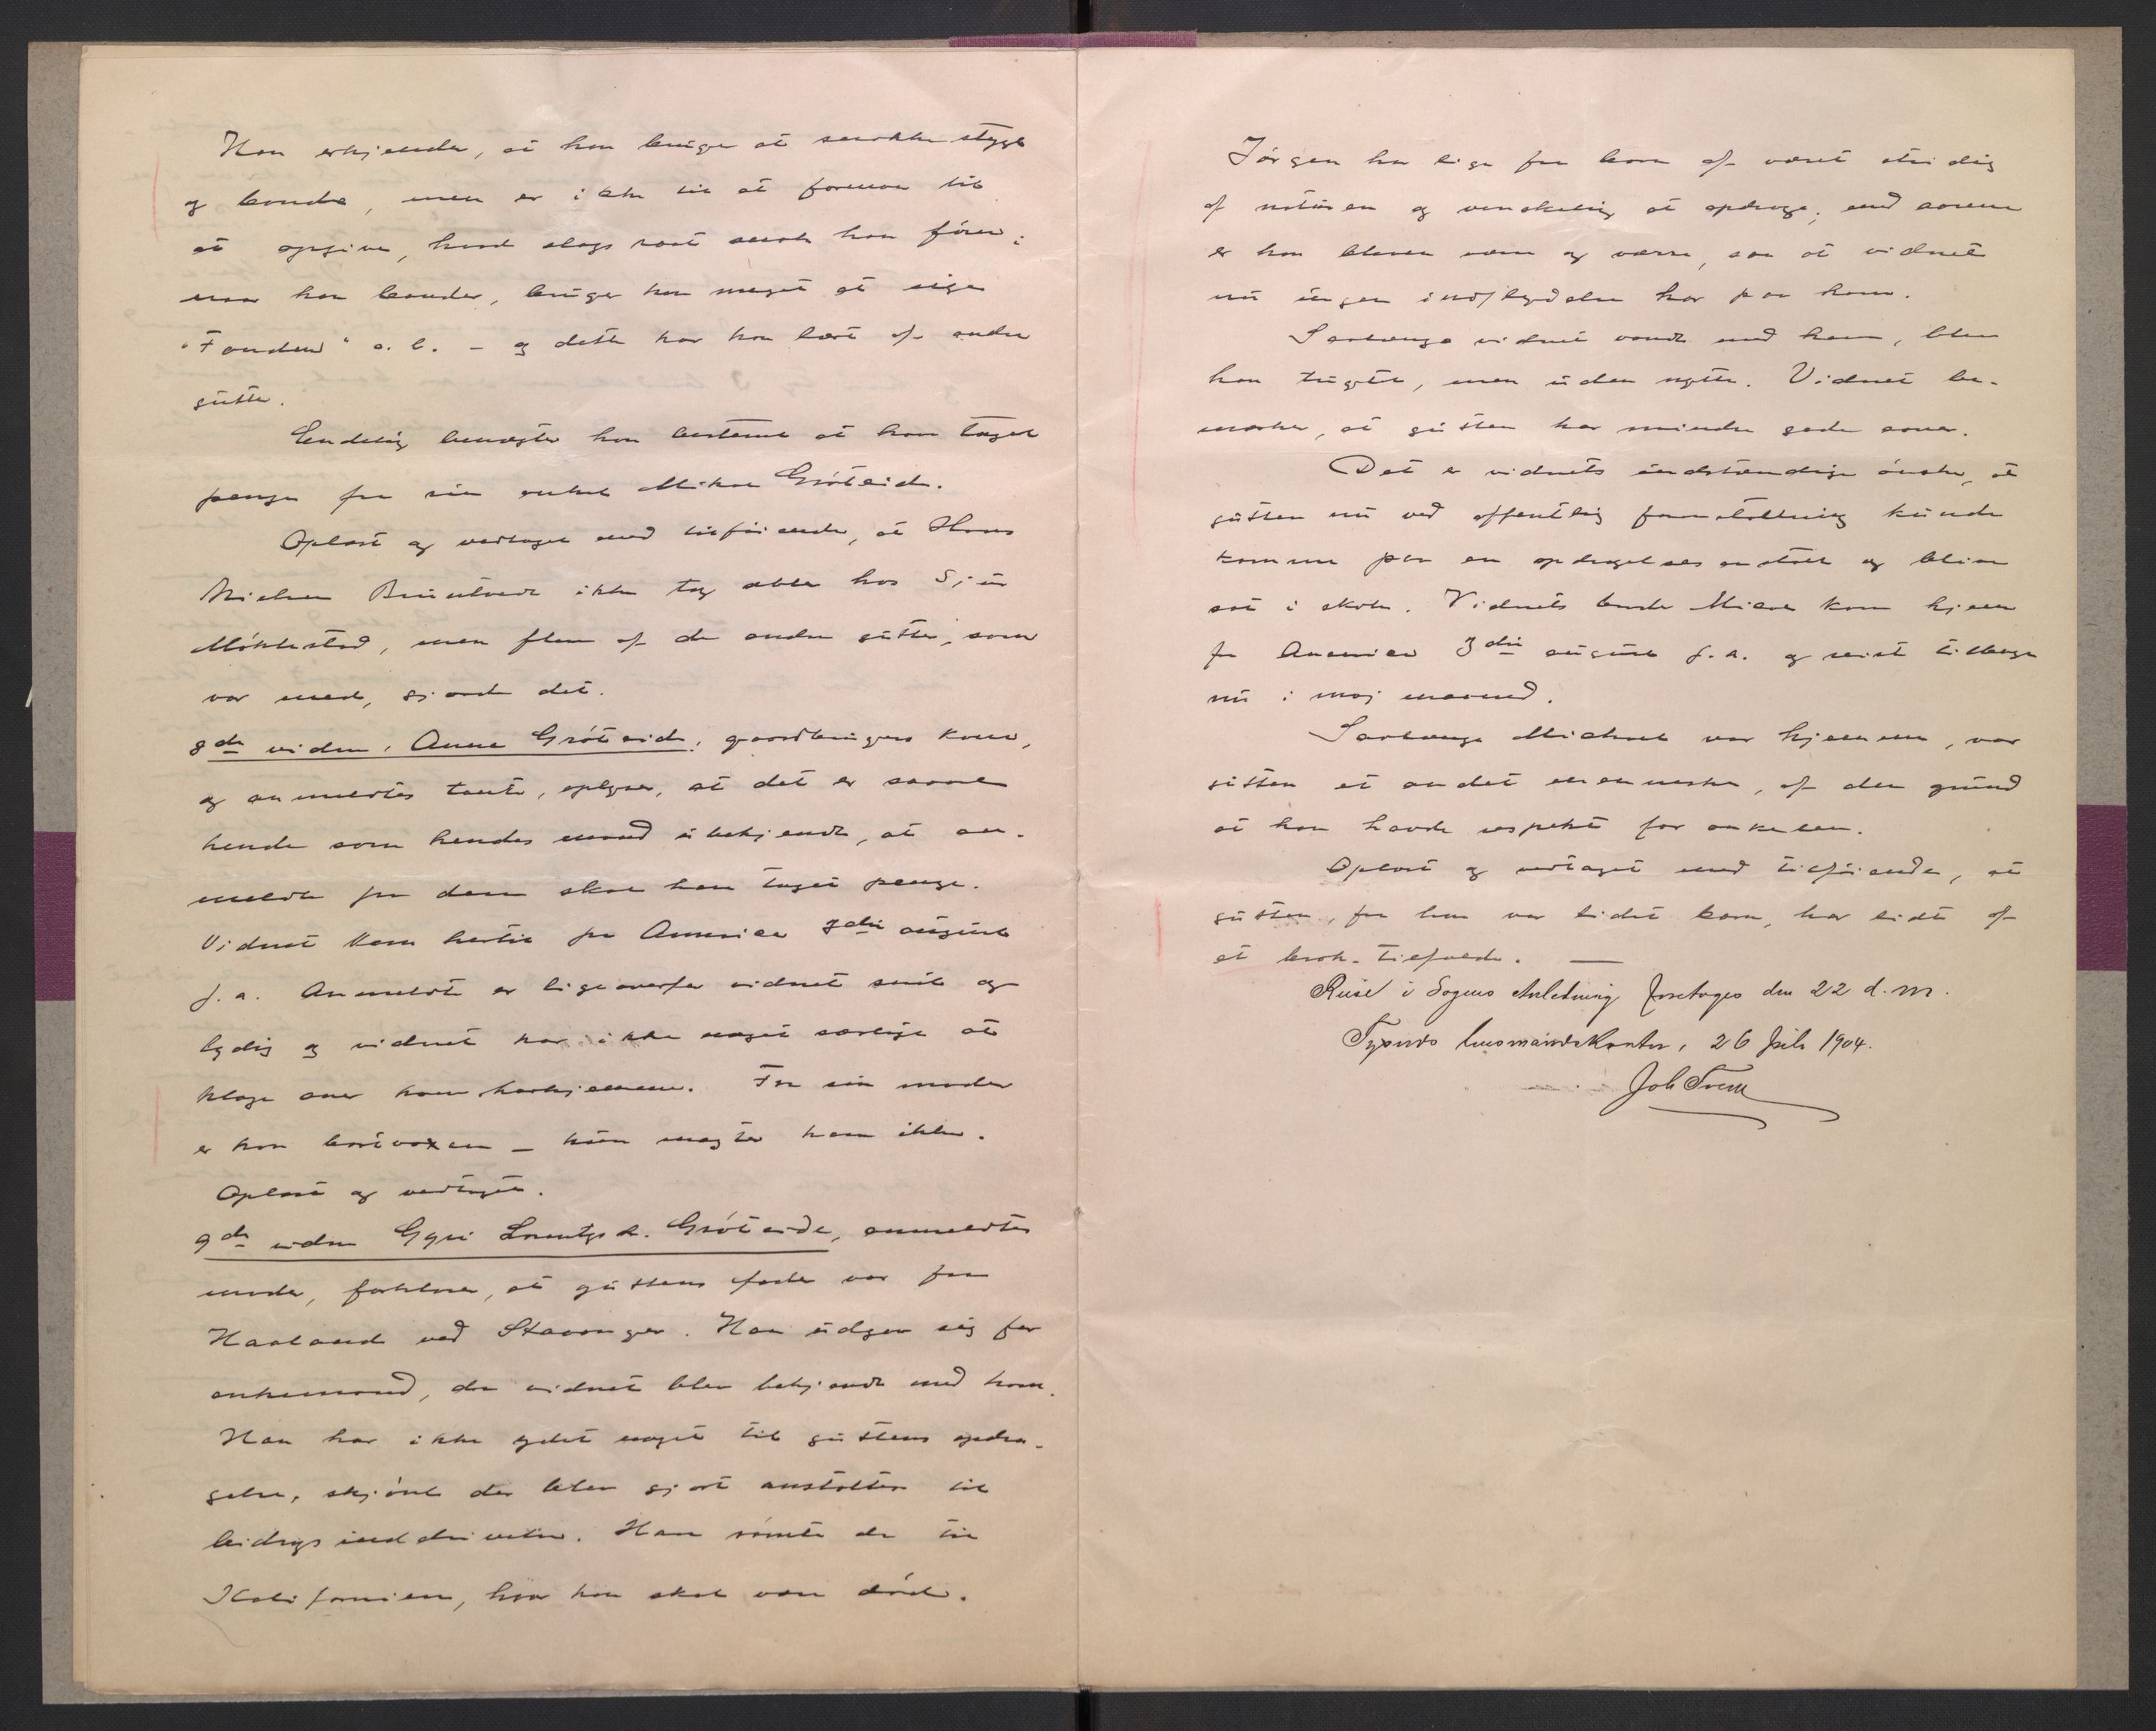 Han erkjender, at han bruger at snakke stygt
og bande, men er ikke til at formaa til
at opgive, hvad slags raat snak han fører;
naar han bander, bruger han meget at sige
"Fanden" o. l. – og dette har han lært af andre
gutter.
Endelig benægter han bestemt at have taget
penge fra sin onkel Mikal Grøteide.
Oplæst og vedtaget med tilføiende, at Hans
Nielsen ikke tog æbler hos Sjur
Møklestad, men flere af de andre gutter, som
var med, gjorde det.
8de vidne, Anna Grøteide, gaardbrugers kone,
og anmeldtes tante, oplyser, at det er saavel
hende som hendes mand ubekjendt, at an-
meldte fra dem skal have taget penge.
Vidnet kom hertil fra Amerika 3die august
f. a. Anmeldte er ligeoverfor vidnet snil og
lydig og vidnet har ikke noget særlige at
klage over ham herhjemme. For sin moder
er han bortvoxen – hun magter ham ikke.
Oplæst og vedtaget.
9de vidne Gyri Lorentzsd. Grøteide, anmeldtes
moder, forklarer, at guttens fader var fra
Haaland ved Stavanger. Han udgav sig for
enkemand, da vidnet blev bekjendt med ham.
Han har ikke ydet noget til guttens opdra-
gelse, skjønt der blev gjort anstalter til
bidrags inddrivelse. Han rømte da til
Kalifornien, hvor han skal være død.
Jørgen har lige fra barn af været stridig
af naturen og vanskelig at opdrage; med aarene
er han bleven værre og værre, saa at vidnet
nu ingen indflydelse har paa ham.
Saalænge vidnet vandt med ham, blev
han tugtet, men uden nytte. Vidnet be-
mærker, at gutten har mindre gode evner.
Det er vidnets indstændige ønske, at
gutten nu ved offentlig foranstaltning kunde
komme paa en opdragelsesanstalt og blive
sat i skole. Vidnets broder Mikal kom hjem
fra Amerika 3die august f. a. og reiste tilbage
nu i mai maaned.
Saalænge Michael var hjemme, var
gutten et andet menneske, af den grund
at han havde respekt for onkelen.
Oplæst og vedtaget med tilføiende, at
gutten, fra han var lidet barn, har lidt af
et brok-tilfælde. —
Reise i Sagens Anledning foretoges den 22 d. m.
Lensmandskontor, 26 Juli 1904.
Joh Tveit